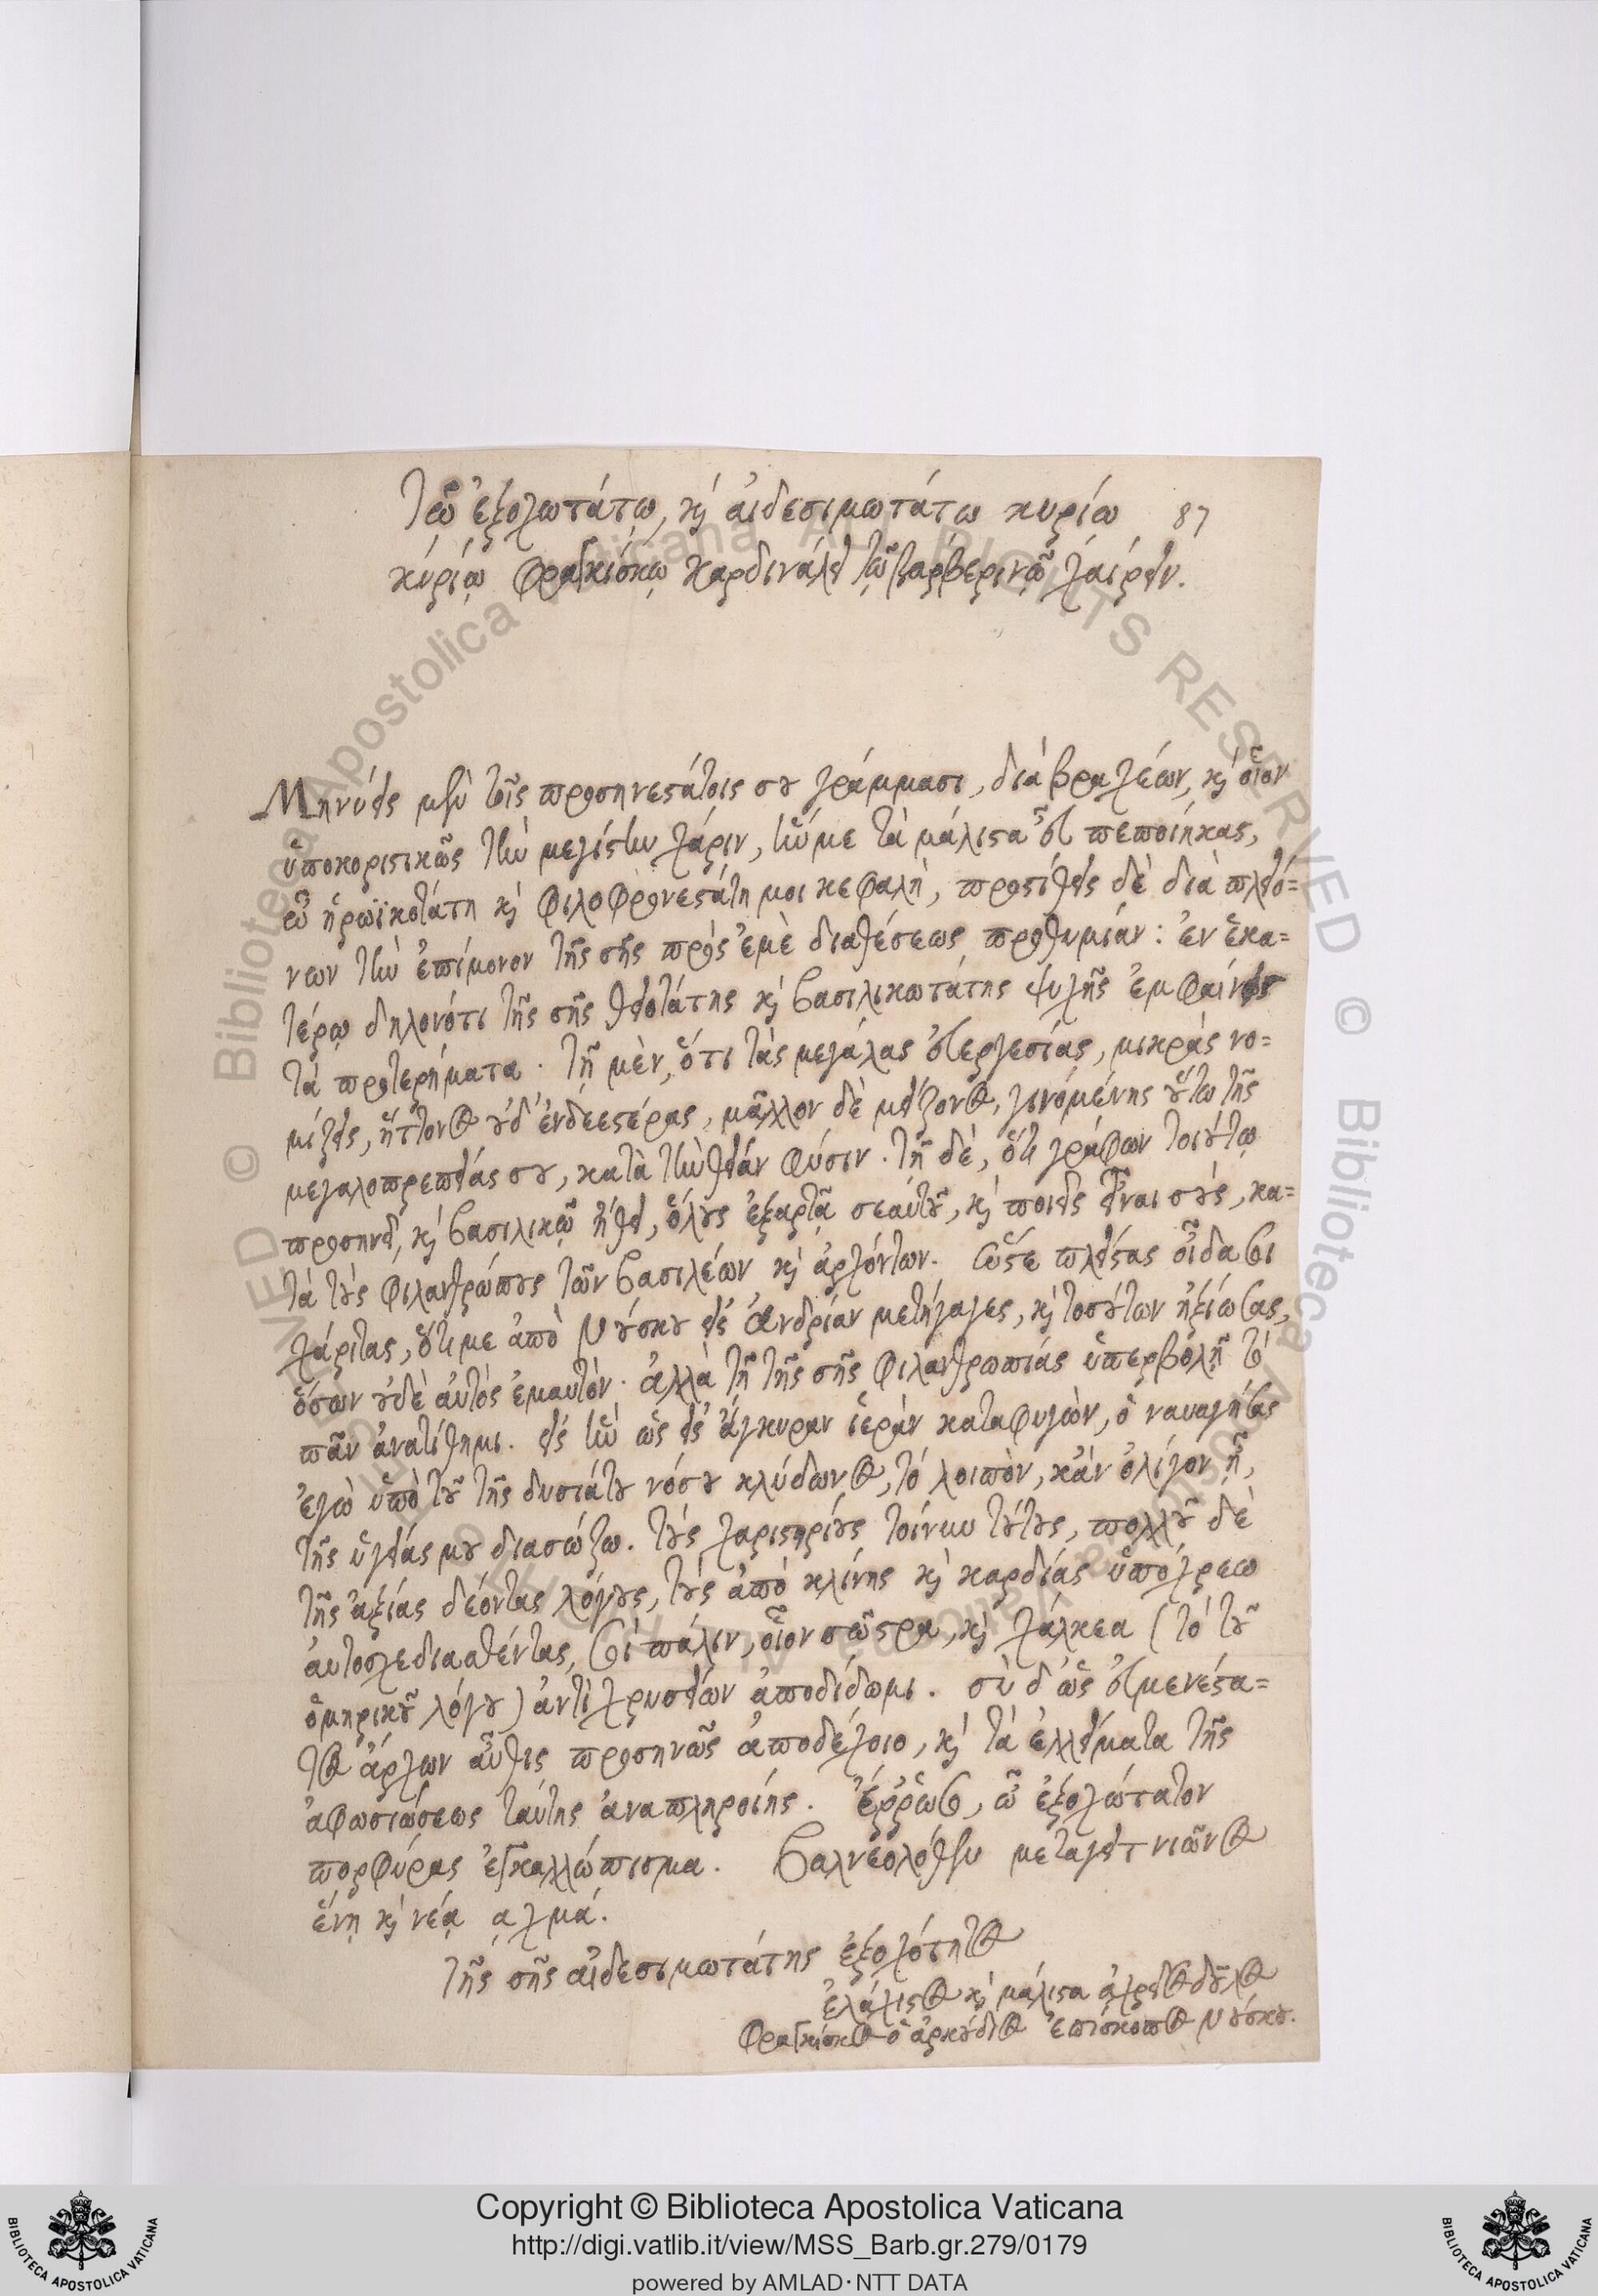 Τῷ ἐξοχωτάτῳ, κ̀ αἰδεσιμωτάτῳ κυρίῳ 87
κυρίῳ Φραγκίσκῳ Καρδινάλει τῷ Βαρβερινῷ χαίρειν.
Μηνύεις μὲν τοῖς προσηνεστάτοις σου γράμμασι, διὰ βραχέων, κ̀ οἷον
ὑποκοριστικῶς τὴν μεγίστην χάριν, ἣν με τὰ μάλιστα εὖ πεποίηκας,
ὦ ἡρωϊκοτάτη κ̀ φιλοφρονεστάτη μοι κεφαλὴ, προστίθεις δὲ διὰ πλειό=
νων τὴν ἐπίμονον τῆς σῆς πρὸς ἐμὲ διαθέσεως προθυμίαν: ἐν ἑκα=
τέρῳ δηλονότι τῆς σῆς θειοτάτης κ̀ βασιλικωτάτης ψυχῆς ἐμφαίνεις
τὰ προτερήματα. τῇ μὲν, ὅτι τὰς μεγάλας εὐεργεσίας, μικρὰς νο=
μίζεις, ἥττονος οὐδ' ἐνδεεστέρας, μᾶλλον δὲ μείζονος, γινομένης οὕτω τῆς
μεγαλοπρεπείας σου, κατὰ τὴν θείαν φύσιν. τῇ δὲ, ὅτι γράφων τοιούτῳ
προσηνεῖ, κ̀ βασιλικῷ ἤθει, ὅλους ἐξαρτᾷ σεαυτοῦ, κ̀ ποιεῖς εἶναι σοὺς, κα=
τὰ τοὺς φιλανθρώπους τῶν βασιλέων κ̀ ἀρχόντων. ὥστε πλείστας οἶδα σοι
χάριτας, ὅτι με ἀπὸ Νούσκου εἰς Ἀνδρίαν μετήγαγες, κ̀ τοσούτων ἠξίωσας,
ὅσων οὐδὲ αὐτὸς ἐμαυτὸν. ἀλλὰ τῇ τῆς σῆς φιλανθρωπίας ὑπερβολῇ τὸ
πᾶν ἀνατίθημι. εἰς ἣν ὡς εἰς ἄγκυραν ἱερὰν καταφυγὼν, ὁ ναυαγήσας
ἐγὼ ὑπὸ τοῦ τῆς δυσιάτου νόσου κλύδωνος, τὸ λοιπὸν, κἂν ὀλίγον ᾖ,
τῆς ὑγείας μου διασώζω. τοὺς χαριστηρίους τοίνυν τούτους, πολλοῦ δὲ
τῆς ἀξίας δέοντας λόγους, τοὺς ἀπὸ κλίνης κ̀ καρδίας ὑπόχρεω
αὐτοσχεδιασθέντας, σοὶ πάλιν, οἷον σῶστρα, κ̀ χάλκεα (τὸ τοῦ
ὁμηρικοῦ λόγου) ἀντὶ χρυσείων ἀποδίδωμι. σὺ δ' ὡς εὐμενέστα=
τος ἄρχων αὖθις προσηνῶς ἀποδέχοιο, κ̀ τὰ ἐλλείματα τῆς
ἀφωσιώσεως ταύτης ἀναπληροίης. ἔῤῥωσο, ὦ ἐξοχώτατον
πορφύρας ἐγκαλλώπισμα. Βαλνεολόθεν μεταγειτνιῶνος
ἕνῃ κ̀ νέᾳ αχμά.
τῆς σῆς αἰδεσιμωτάτης ἐξοχότητος
ἐλάχιστος κ̀ μάλιστα ἀχρεῖος δοῦλος
Φραγκίσκος ὁ ἀρκούδιος ἐπίσκοπος Νούσκου.
Copyright © Biblioteca Apostolica Vaticana
http://digi.vatlib.it/view/MSS_Barb.gr.279/0179
powered by AMLAD·NTT DATA
BIBLIOTECA APOSTOLICA VATICANA
BIBLIOTECA APOSTOLICA VATICANA